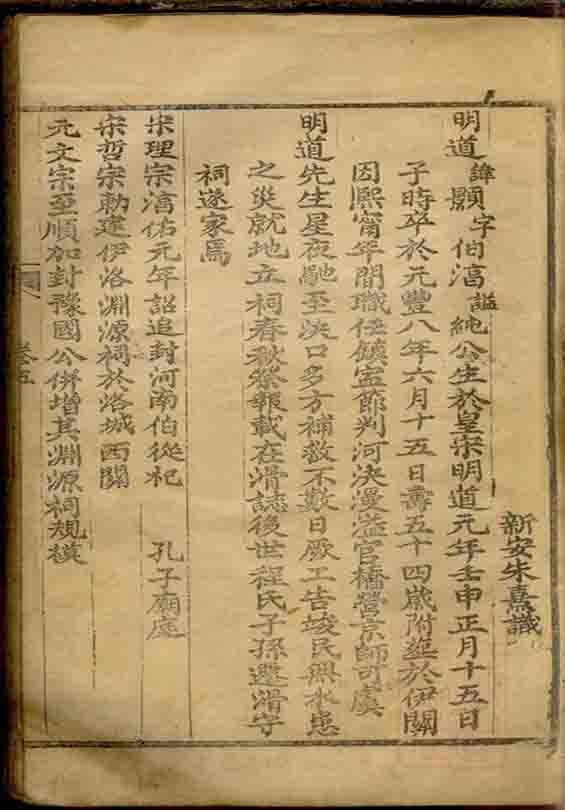 新安朱熹識
明道諱顥字伯淳謚純公生於皇宋明道元年壬申正月十五日
子時卒於元豐八年六月十五日壽五十四歲附塟於伊闕
因熙甯年間職任鎮寍節判河決漫溢官橋營京師可虞
明道先生星夜馳至決口多方補救不數日厥工告竣民無水患
之災就地立祠春秋祭報載在滑誌後世程氏子孫遷滑守
祠遂家焉
宋理宗淳佑元年詔追封河南伯從祀 孔子廟庭
宋哲宗勅建伊洛淵源祠於洛城西關
元文宗至順加封豫國公併增其淵源祠規模
卷五